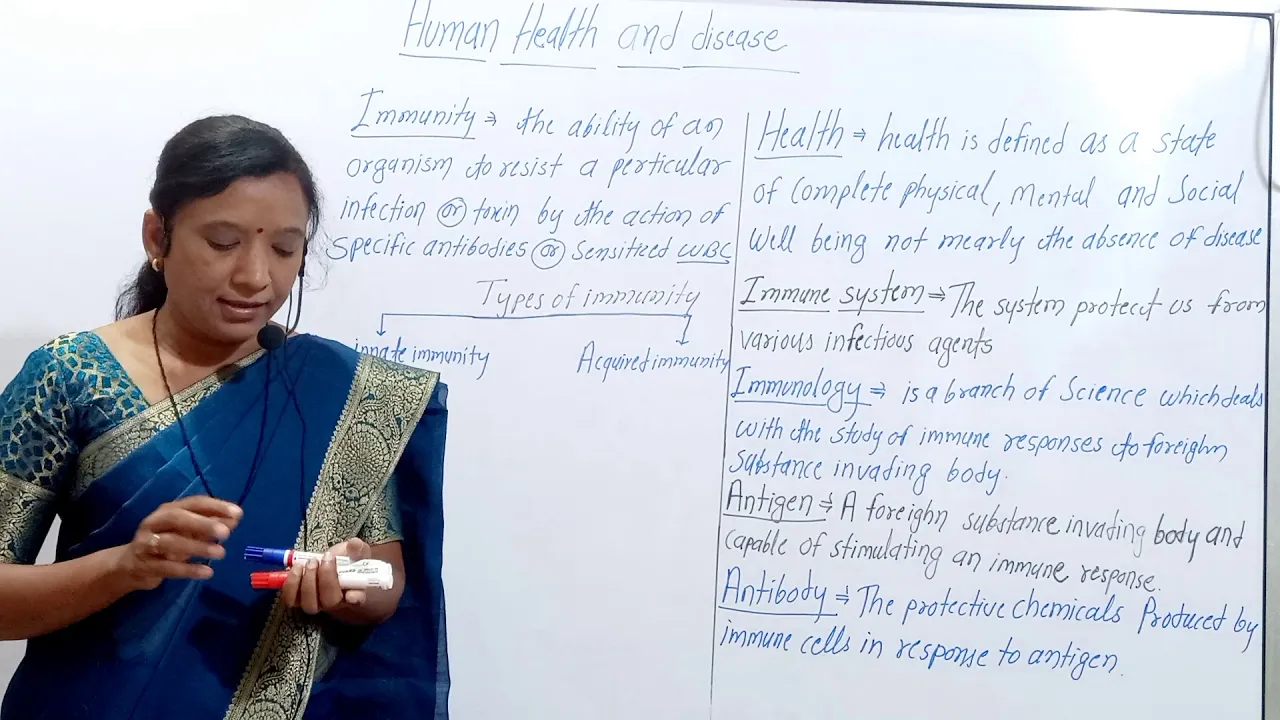 Human Health and disease
Immunity ⇒ the ability of an
organism to resist a perticular
infection or toxin by the action of
Specific antibodies or Sensitized WBC
Types of immunity
innate immunity
Acquired immunity
Health ⇒ health is defined as a state
of Complete physical, Mental and Social
Well being not mearly the absence of disease
Immune system ⇒ The system protect us from
various infectious agents
Immunology ⇒ is a branch of Science which deals
with the study of immune responses to foreighn
Substance invading body.
Antigen ⇒ A foreighn substance invading body and
Capable of stimulating an immune response.
Antibody ⇒ The protective Chemicals Produced by
immune cells in response to antigen.